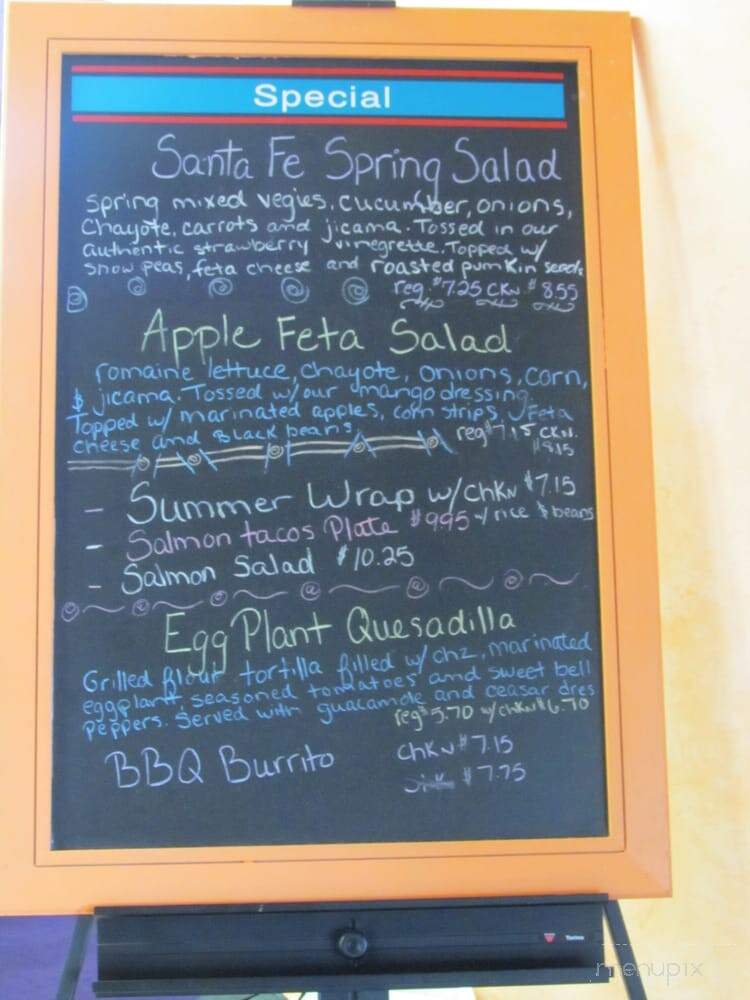 Special
Santa Fe Spring Salad
Spring mixed vegies, cucumber, onions,
Chayote, carrots and jicama. Tossed in our
authentic strawberry vinegrette. Topped w/
snow peas, feta cheese and roasted pumkin seeds
reg $7.25 CKN $8.55
Apple Feta Salad
romaine lettuce, chayote, onions, corn,
& jicama. Tossed w/our mango dressing.
Topped w/ marinated apples, corn strips, Feta
cheese and Black beans
reg $7.15 CKN.
$8.15
- Summer Wrap w/CHKN $7.15
- Salmon tacos Plate $9.95 w/ rice & beans
- Salmon Salad $10.25
Egg Plant Quesadilla
Grilled flour tortilla filled w/ chz, marinated
eggplant, seasoned tomatoes and sweet bell
peppers. Served with guacamole and ceasar dres
reg $5.70 w/chkn $6.70
BBQ Burrito
CHKN $7.15
$7.75
menupix